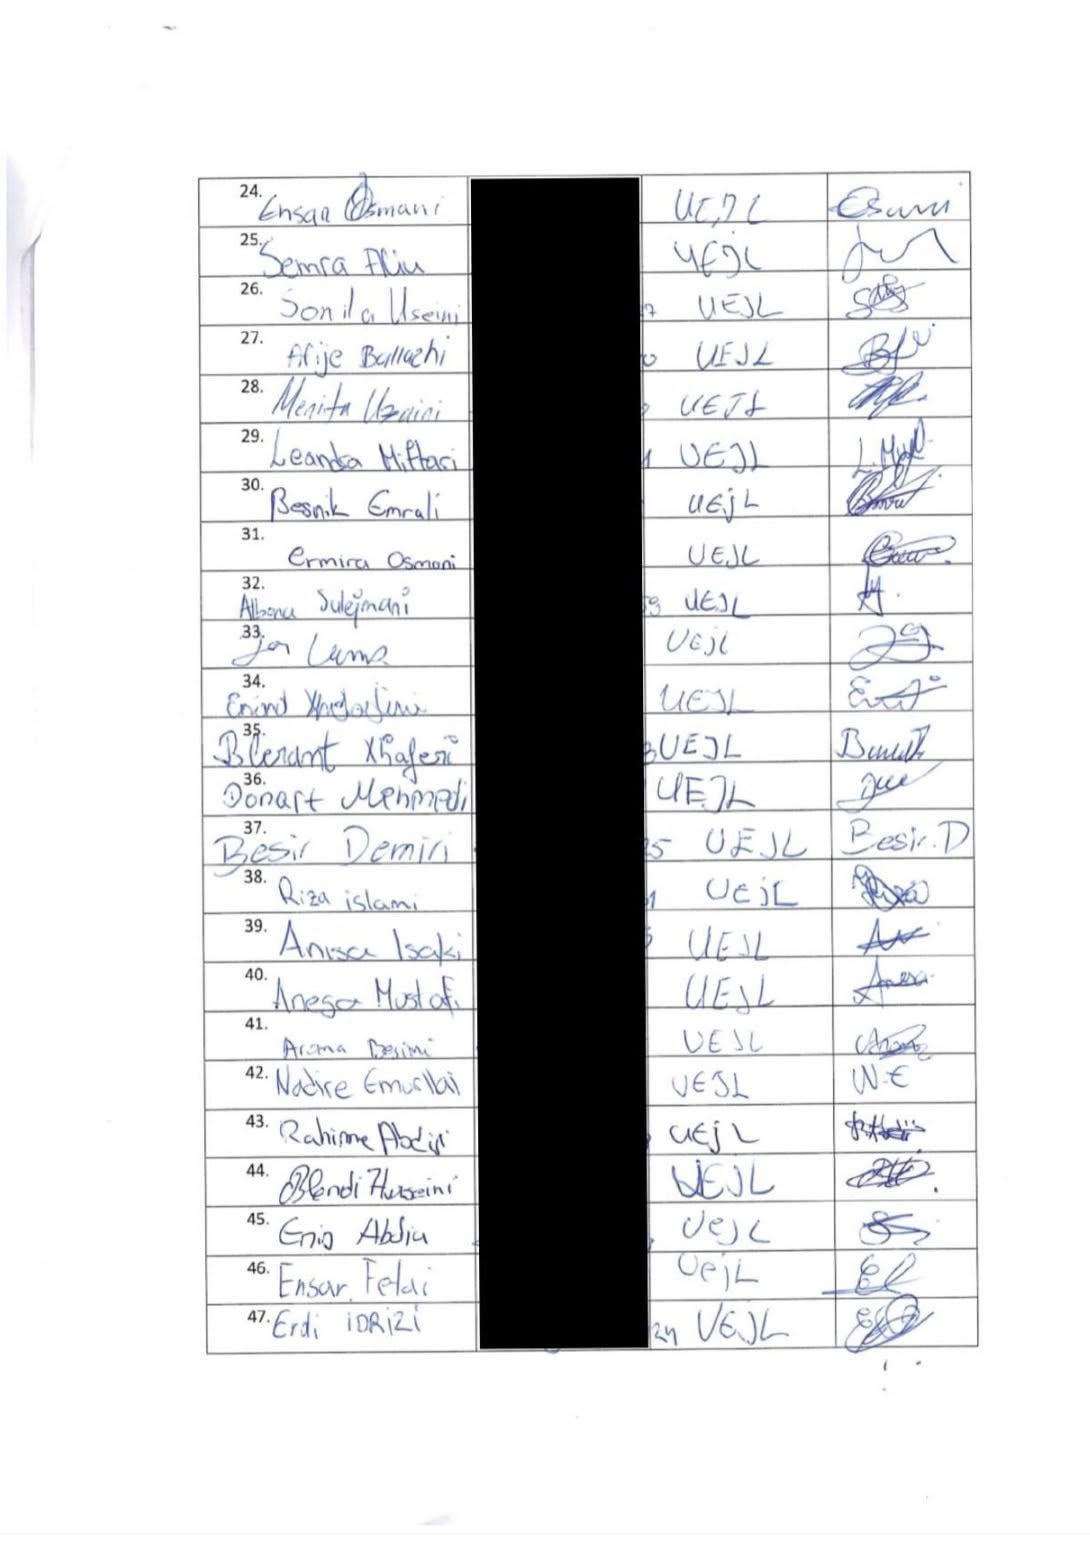 24. Ensar Osmani UEJL
25. Semra Aliu UEJL
26. Sonila Useini 7 UEJL
27. Afije Ballazhi 0 UEJL
28. UEJL
29. Leandra Miftari 1 UEJL L.
30. Besnik Emrali UEjL
31. Ermira Osmani UEJL
32. Albona Sulejmani 59 UEJL
33. Jon Lama UEJL
34. UEJL
35. Blerant Xhaferi 3 UEJL
36. Donart Mehmedi UEJL
37. Besir Demiri 25 UEJL Besir.D
38. Riza islami 1 UEjL
39. Anisa Isaki UEJL
40. Anesa Mustafi UEJL Anesa
41. Besimi UEJL
42. Nadire Emurllai UEJL N.E
43. Rahime Abdiji UEjL
44. Blendi Huseini UEJL
45. Enis Abdiu UEJL
46. Ensar Fetai UEjL
47. Erdi IDRIZI 24 UEJL